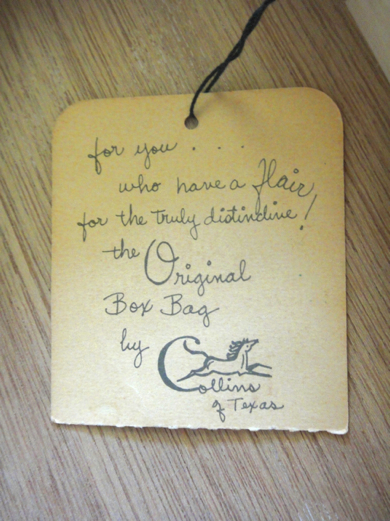 for you . . . .
who have a flair
for the truly distinctive!
the Original
Box Bag
by Collins
of Texas